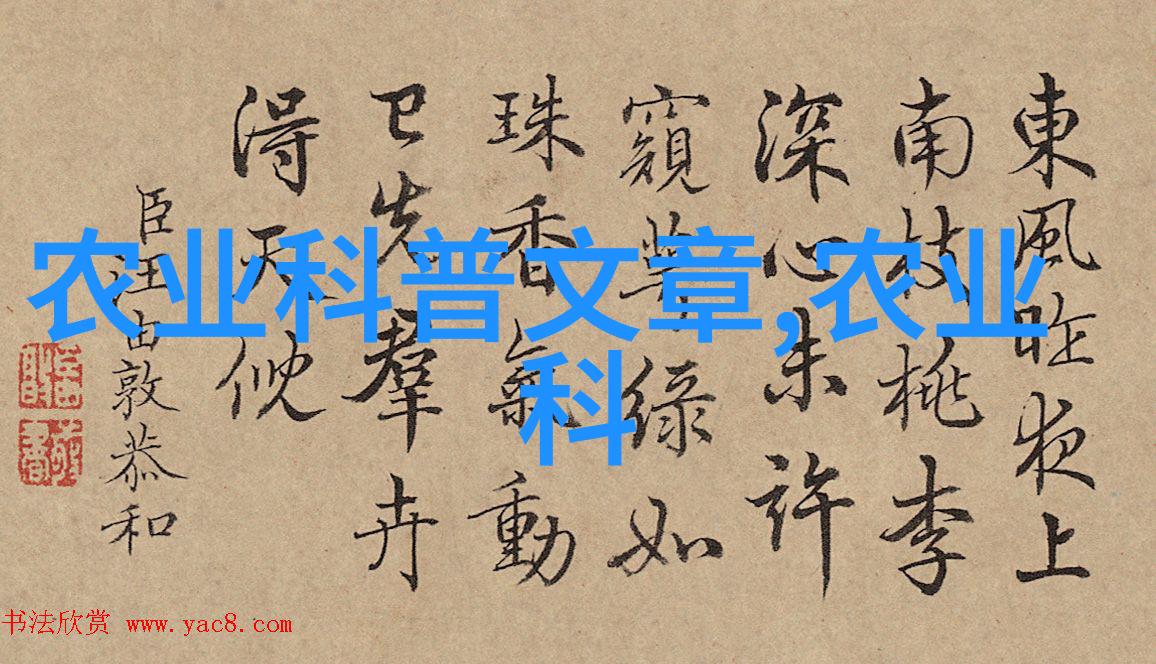 東風昨夜上
南枝桃李
深心未許
窺萼緑如
珠香氣動
已先羣卉
得天倪
臣汪由敦恭和
农业科普文章,农业
科
书法欣赏 www.yac8.com